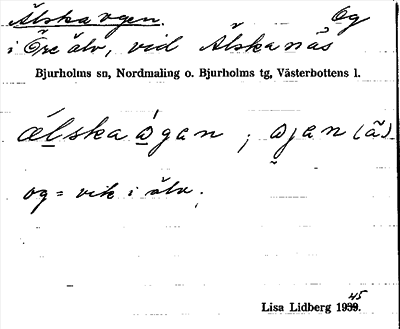 Älskaogen. Og
i Öre älv, vid Älskanäs
Bjurholms sn, Nordmaling o. Bjurholms tg, Västerbottens l.
ælskaågan ; ojan (ä).
og = vik i älv.
Lisa Lidberg 1945.